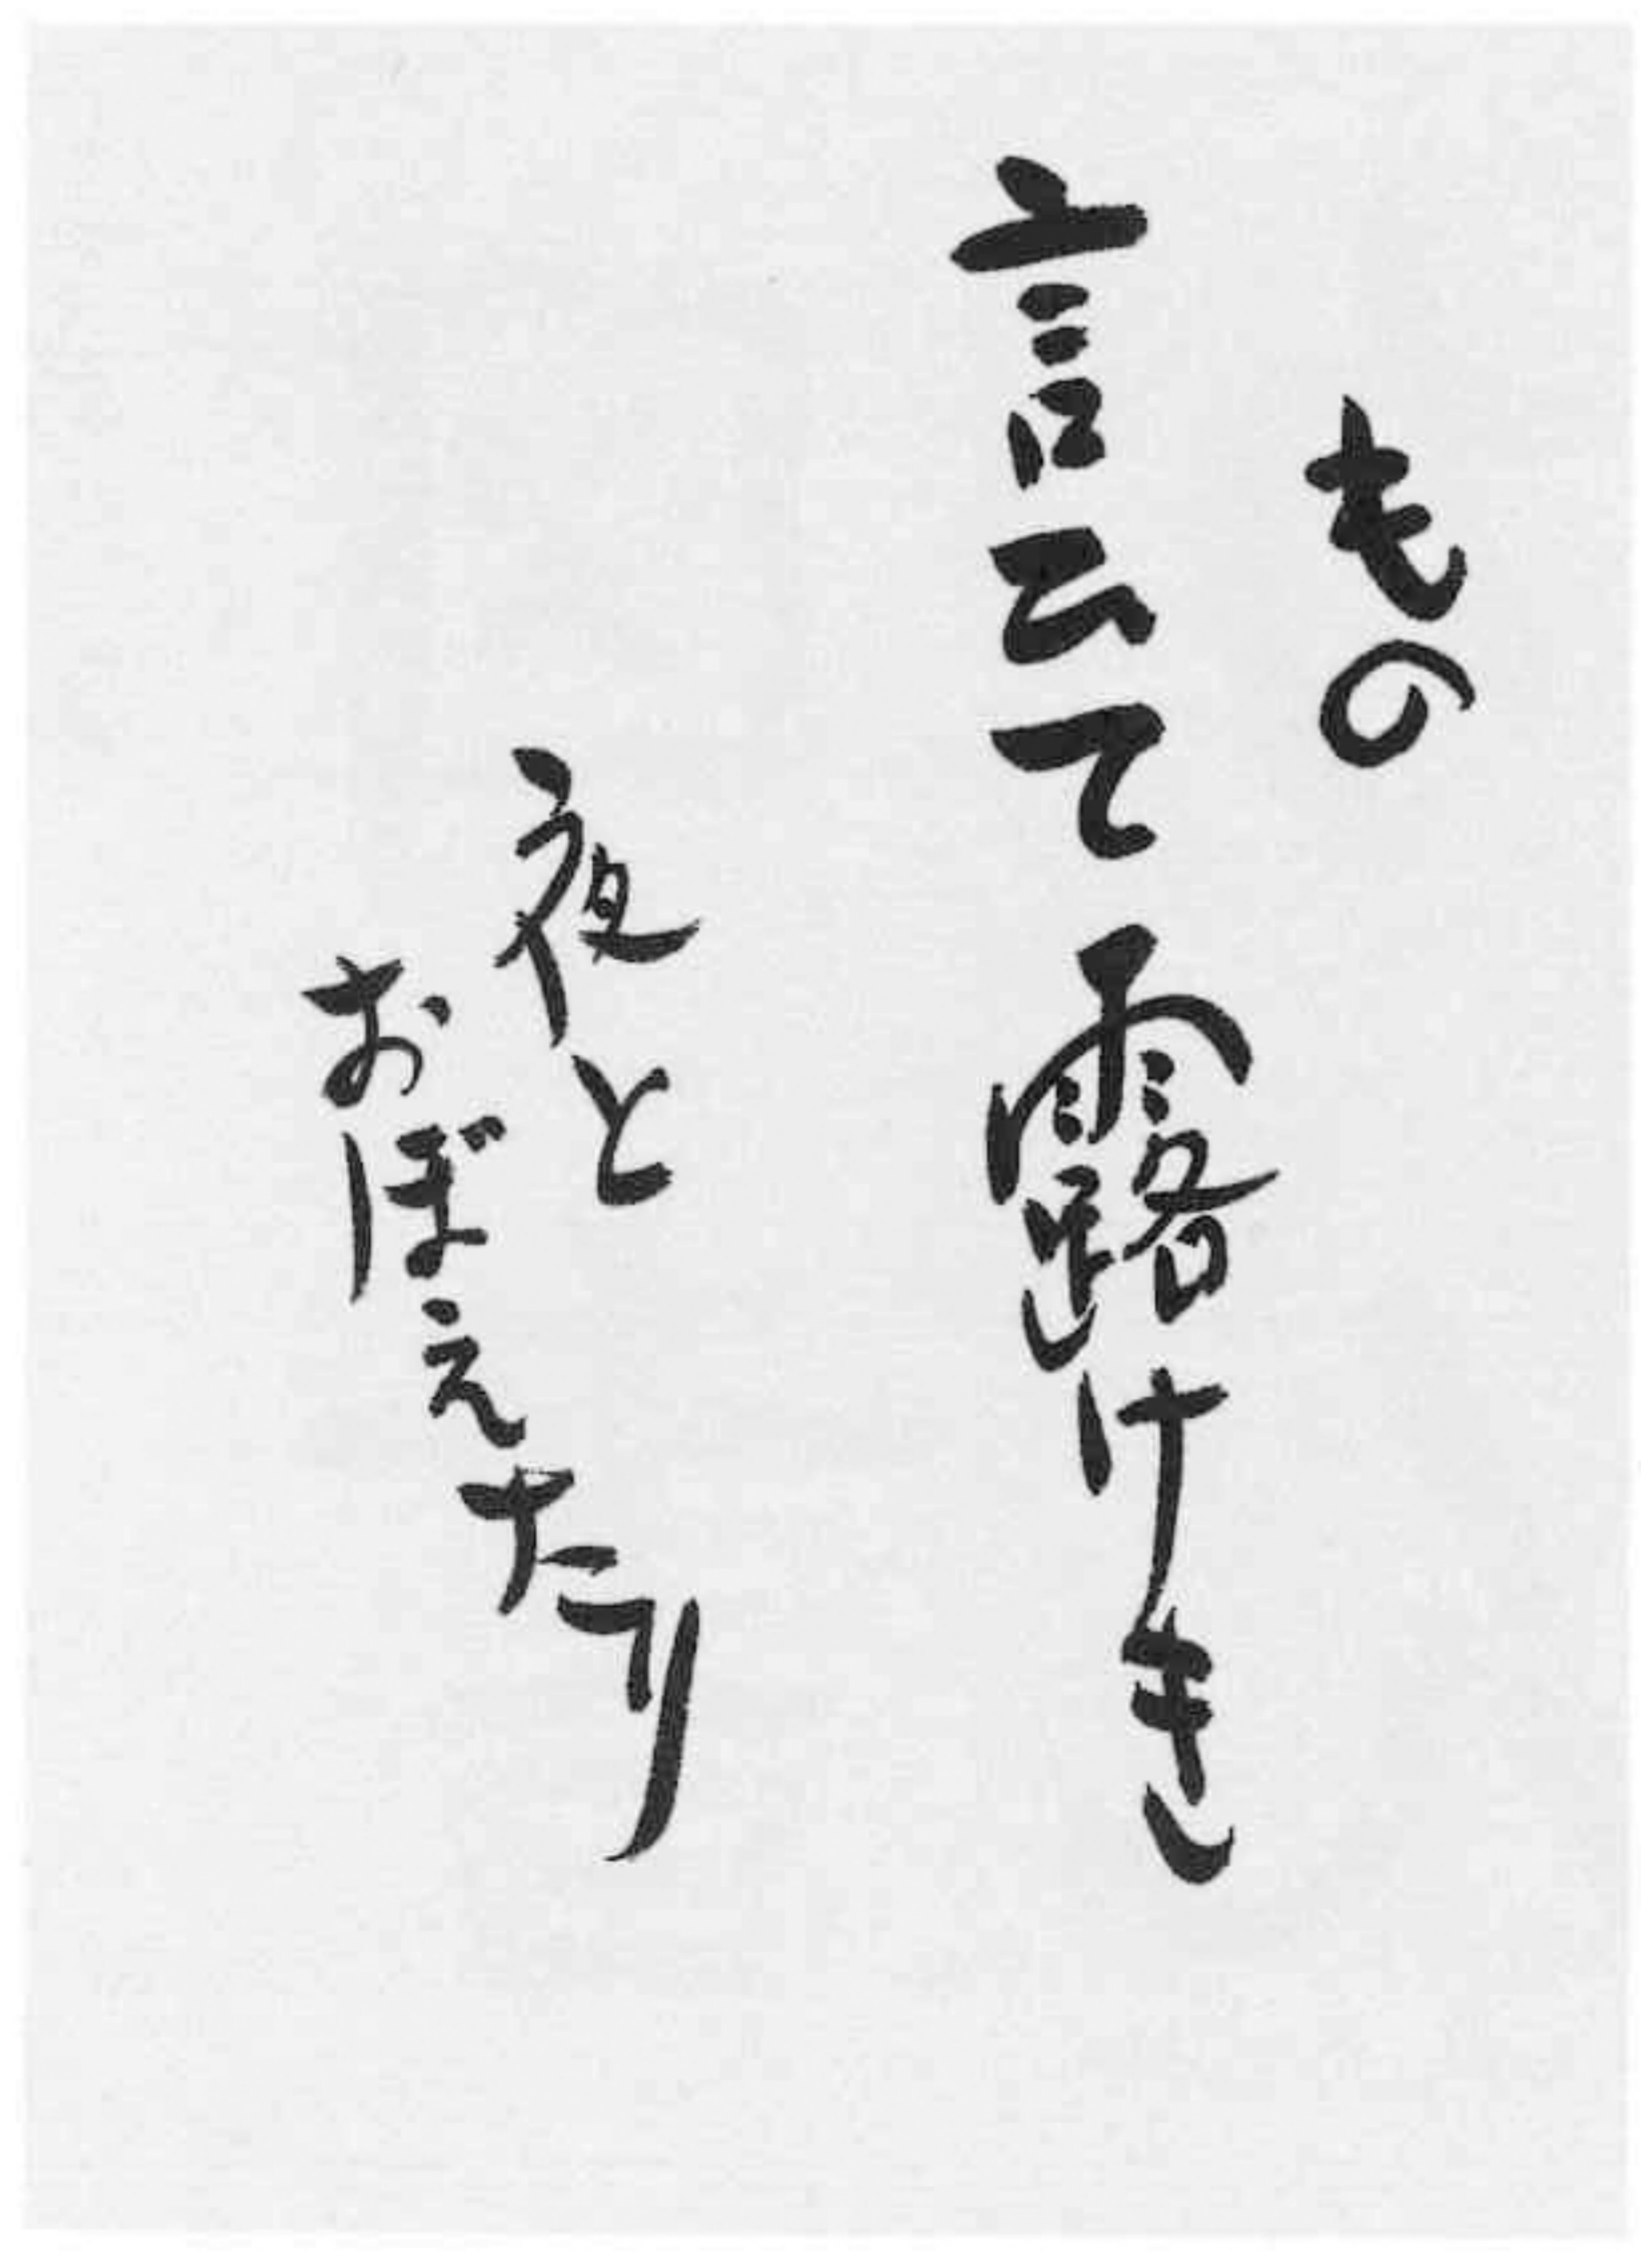 もの
言ひて露けき
夜と
おぼえたり